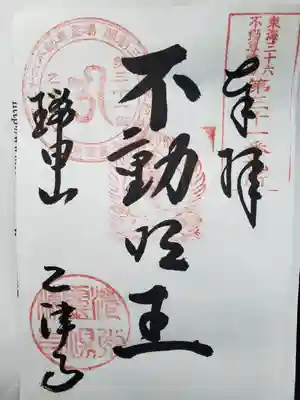 東海三十六
不動尊
第三十一番
奉拝
不動明王
瑞甲山
乙津寺